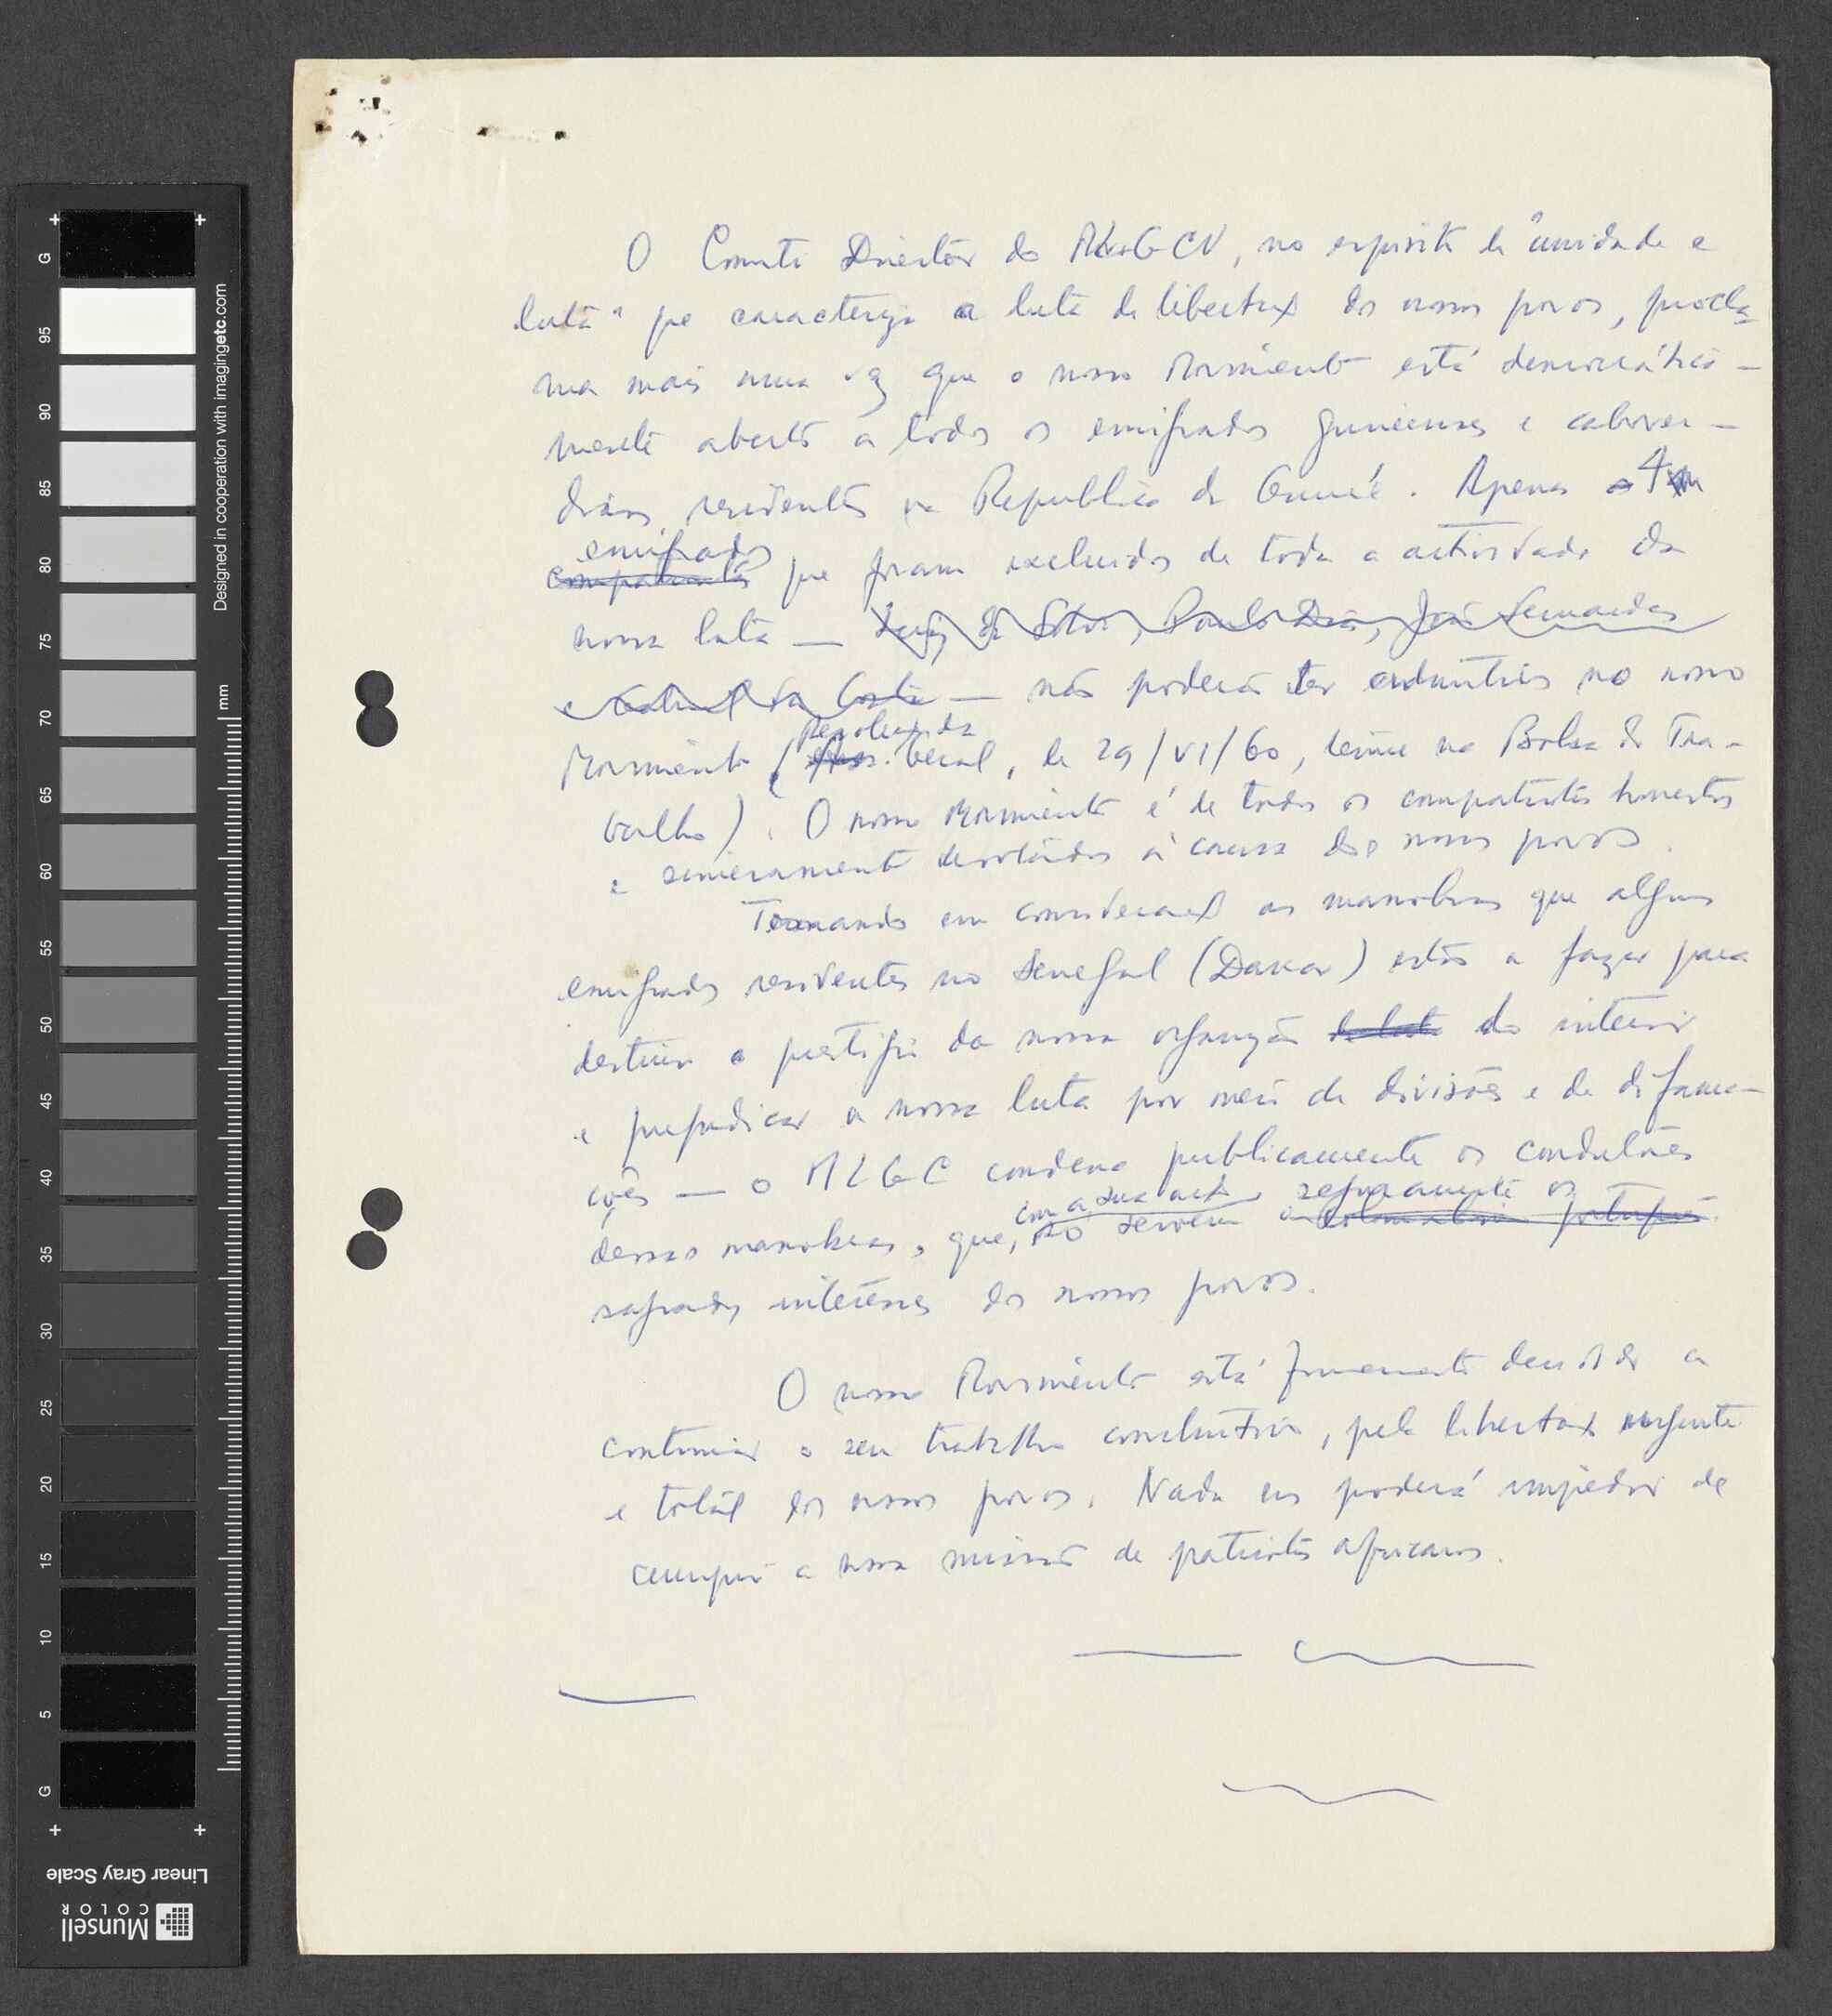 O Comité Director do MLGCV, no espirito de "unidade e
luta" que caracteriza a luta de libertação dos nossos povos, procla
ma mais uma vez que o nosso Movimento está democrática-
mente aberto a todos os emigrados guineenses e cabover-
dianos residentes na Republica da Guiné. Apenas 4
emigrados
compatriotas que foram excluidos de toda a actividade da
nossa luta — Luiz da Silva, Paulo Dias, José Fernandes
e da Costa — não poderão ser admitidos no nosso
Resolução da
Movimento ( Geral, de 29/VI/60, na Bolsa do Tra-
balho). O nosso Movimento é de todos os compatriotas honestos
e sinceramente devotados à causa dos nossos povos.
Tomando em consideração as manobras que alguns
emigrados residentes no Senegal (Dakar) estão a fazer para
destruir o prestigio da nossa organização da luta do interior
e prejudicar a nossa luta por meio de divisões e de difama-
ções — o MLGC condena publicamente os condutores
com a sua acção seguramente os
dessas manobras, que, não servem o colonialismo português
sagrados interesses dos nossos povos.
O nosso Movimento está firmemente decidido a
continuar o seu trabalho construtivo, pela libertação urgente
e total dos nossos povos. Nada nos poderá impedir de
cumprir a nossa missão de patriotas africanos.
G 95 90 85 80 75 70 65 60 55 50 45 40 35 30 25 20 15 10 5 G
mm
Designed in cooperation with imagingetc.com
Linear Gray Scale
Munsell
COLOR